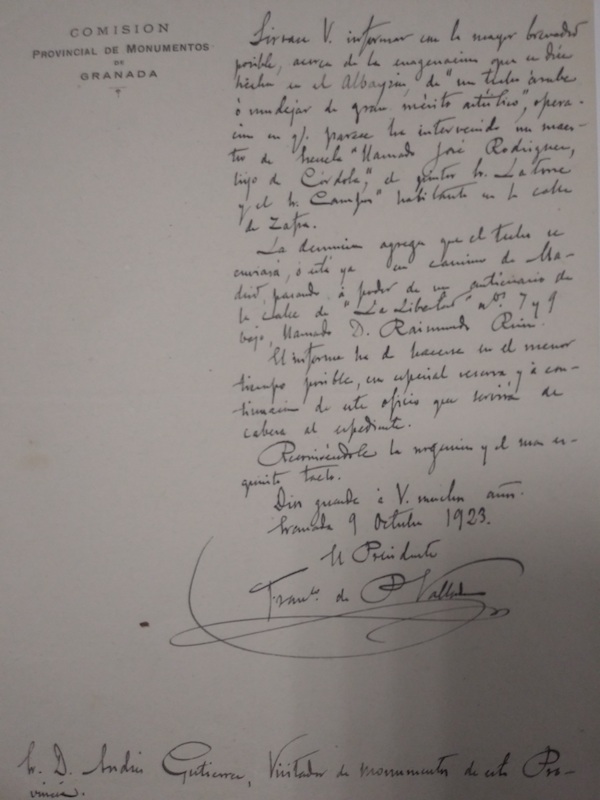 COMISION
PROVINCIAL DE MONUMENTOS
DE
GRANADA
Sirvase V. informar con la mayor brevedad
posible, acerca de la enagenacion que se dice
hecha en el Albayzin, de "un techo árabe
ó mudejar de gran mérito artístico", opera-
cion en q/. parece ha intervenido un maes-
tro de Escuela "llamado José Rodriguez,
hijo de Córdoba", el pintor Sr. Latorre
y el Sr. Campos" habitante en la calle
de Zafra.
La denuncia agrega que el techo se
enviará, ó está ya en camino de Ma-
drid, pasando á poder de un anticuario de
la calle de "La Libertad" nos. 7 y 9
bajo, llamado D. Raimundo Ruiz.
El informe ha de hacerse en el menor
tiempo posible, con especial reserva y á con-
tinuacion de este oficio que servirá de
cabeza al expediente.
Recomiéndole la urgencia y el mas ex-
quisito tacto.
Dios guarde á V. muchos años.
Granada 9 Octubre 1923.
El Presidente
Franco. de P. Valladar
Sr. D. Andrés Gutierrez, Visitador de monumentos de esta Pro-
vincia.